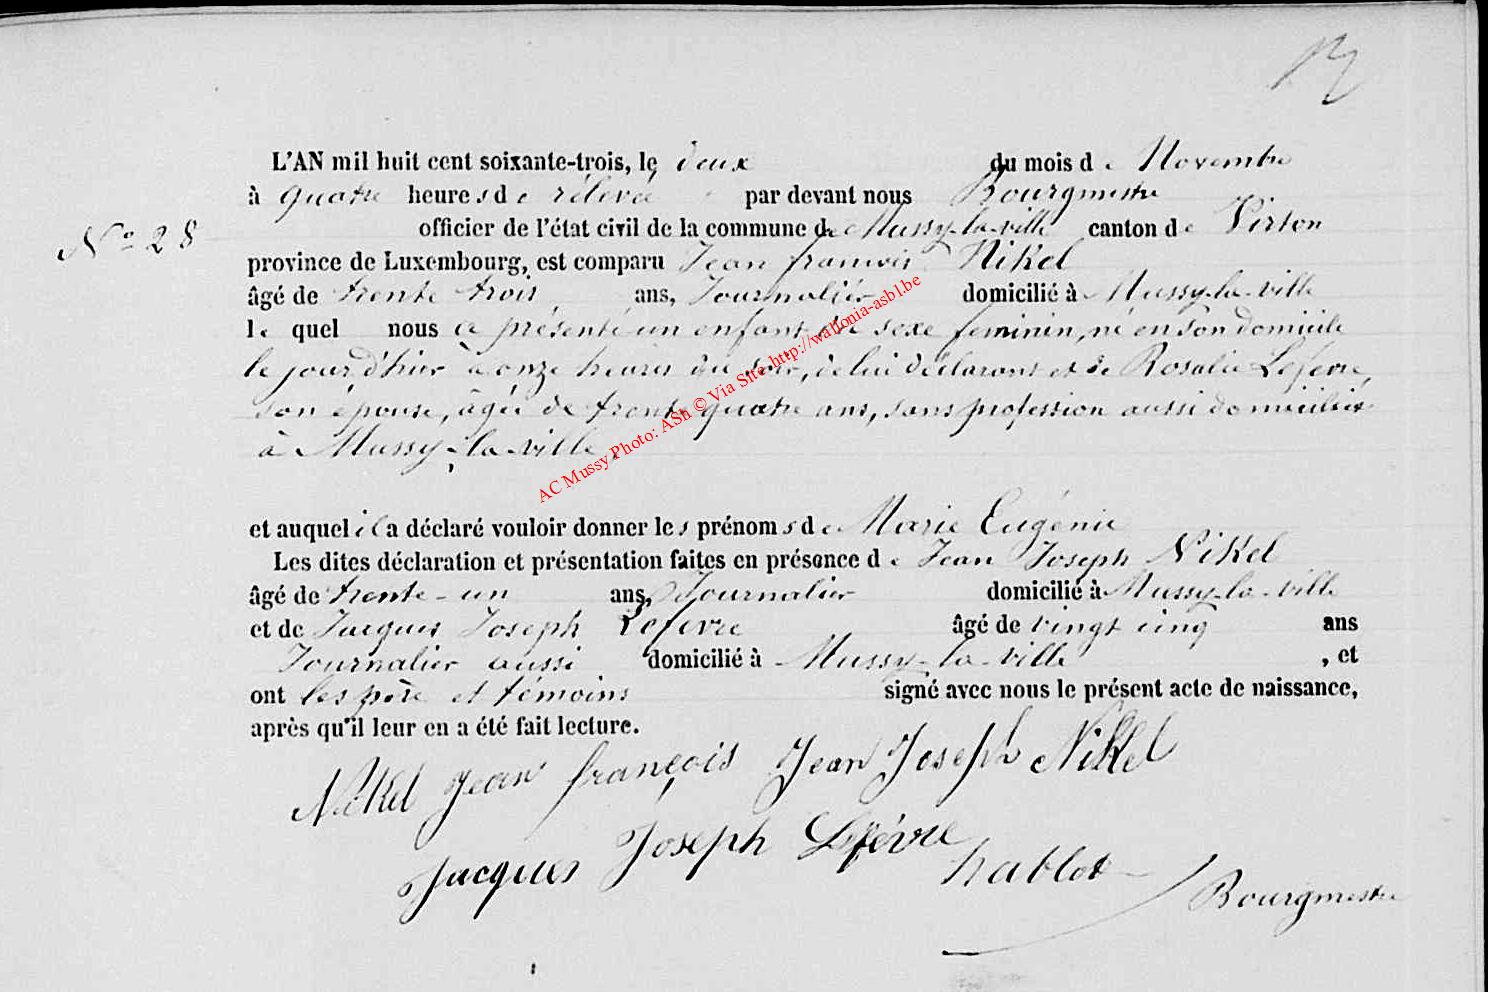 L'AN mil huit cent soixante-trois, le deux du mois de Novembre
à quatre heures de rélevée par devant nous Bourgmestre
N° 28
officier de l'état civil de la commune de Mussy-la-ville canton de Virton
province de Luxembourg, est comparu Jean françois Nikel
âgé de trente trois ans, Journalier domicilié à Mussy-la-ville
le quel nous a présenté un enfant du sexe feminin, né en son domicile
le jour d'hier à onze heures du soir, de lui déclarant et de Rosalie Lefevre,
son épouse, âgée de trente quatre ans, sans profession aussi domiciliée
à Mussy-la-ville,
et auquel il a déclaré vouloir donner les prénoms de Marie Eugénie
Les dites déclaration et présentation faites en présence de Jean Joseph Nikel
âgé de trente-un ans, Journalier domicilié à Mussy-la-ville
et de Jacques Joseph Lefevre âgé de vingt cinq ans
Journalier aussi domicilié à Mussy-la-ville , et
ont les père et témoins signé avec nous le présent acte de naissance,
après qu'il leur en a été fait lecture.
Nikel Jean françois Jean Joseph Nikel
Jacques Joseph Lefévre
hablot Bourgmestre
AC Mussy Photo: ASh © Via Site http://wallonia-asbl.be